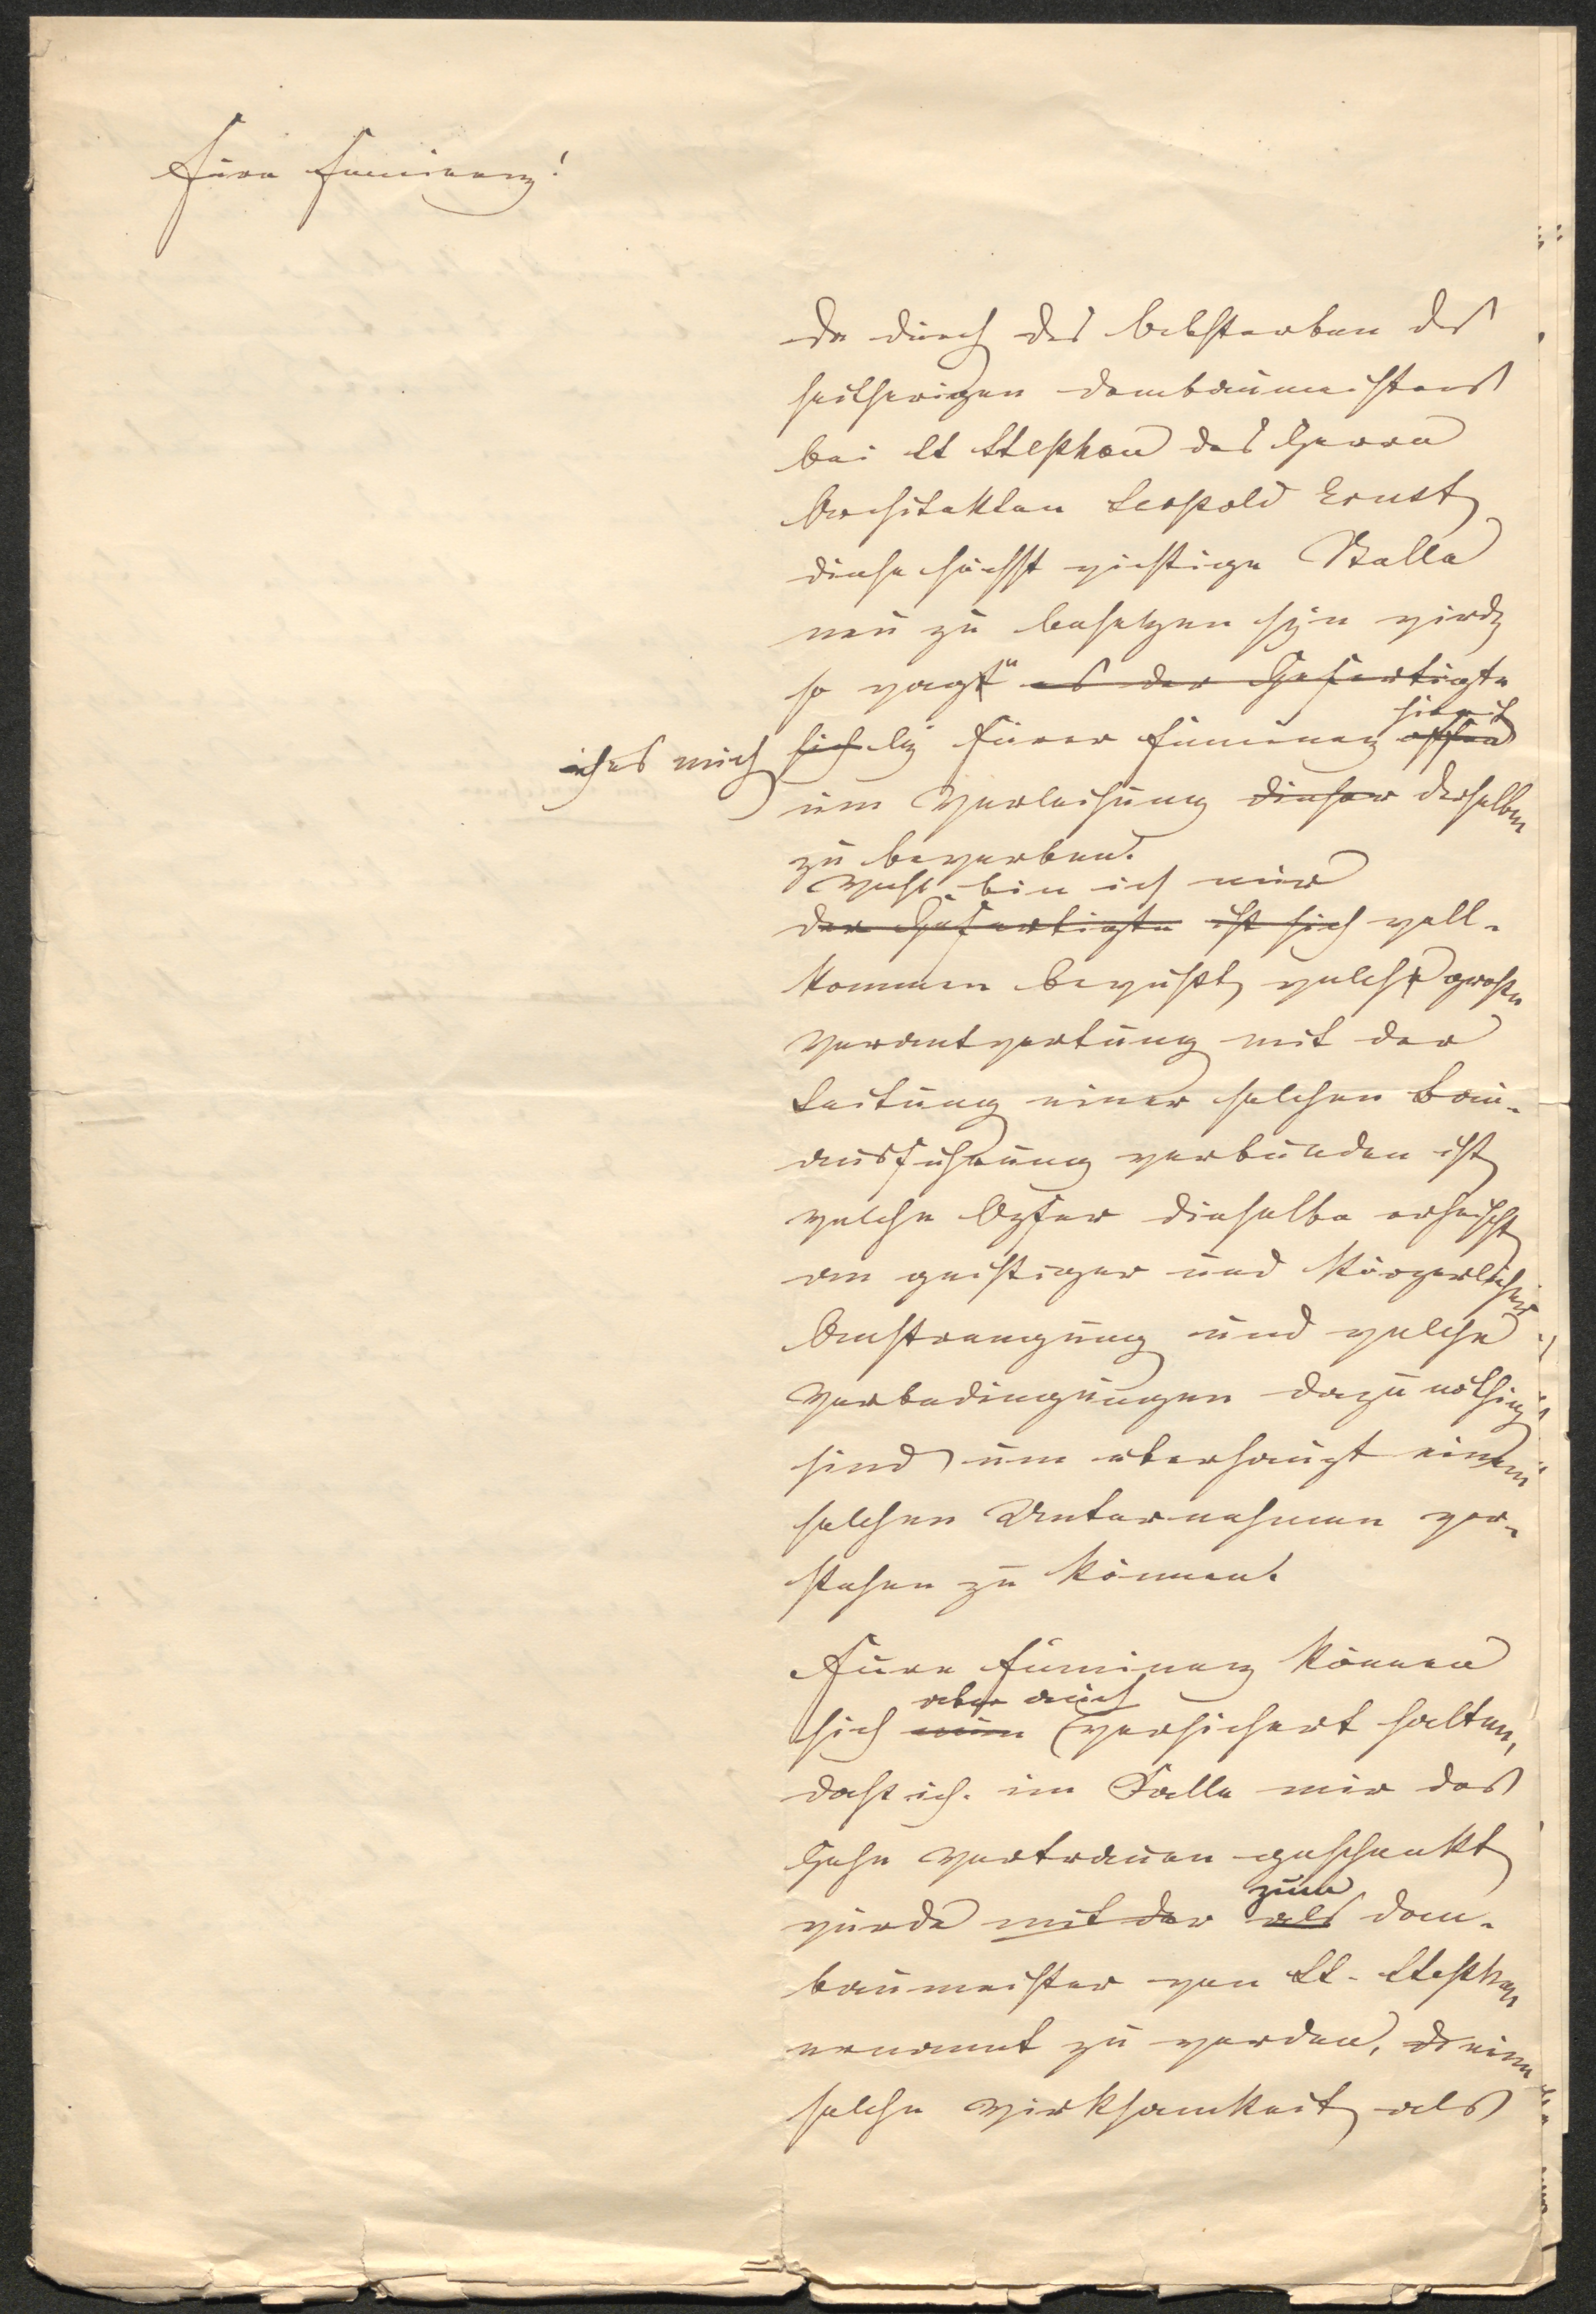 Eure Eminenz!
Da durch das Absterben des
seitherigen Dombaumeisters
bei St Stephan des Herrn
Architekten Leopold Ernst
diese höchst wichtige Stelle
neu zu besetzen seyn wird,
so wagt es der Gefertigte
ich es mich sich bei Eurer Eminenz hiermit
um Verleihung dieser derselben
zu bewerben.
Wohl bin ich mir
der Gefertigte ist sich voll-
kommen bewußt, welche große
Verantwortung mit der
Leitung einer solchen Bau-
ausführung verbunden ist,
welche Opfer dieselbe erheischt
an geistiger und körperlicher
Anstrengung und welche
Vorbedingungen dazu nöthig
sind um überhaupt einem
solchen Unternehmen vor-
stehen zu können.
Eure Eminenz können
aber auch
sich nun versichert halten,
daß ich im Falle mir das
hohe Vertrauen geschenkt
zum
würde mit der als Dom-
baumeister von St. Stephan
ernannt zu werden, eine
solche Wirksamkeit als